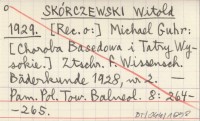 SKÓRCZEWSKI Witold
1929. [Rec. o:] Michael Guhr:
[Choroba Basedowa i Tatry Wy-
sokie.] Ztschr. f. Wissensch.
Bäderkunde 1928, nr 2. —
Pam. Pol. Tow. Balneol. 8: 264-
-265.